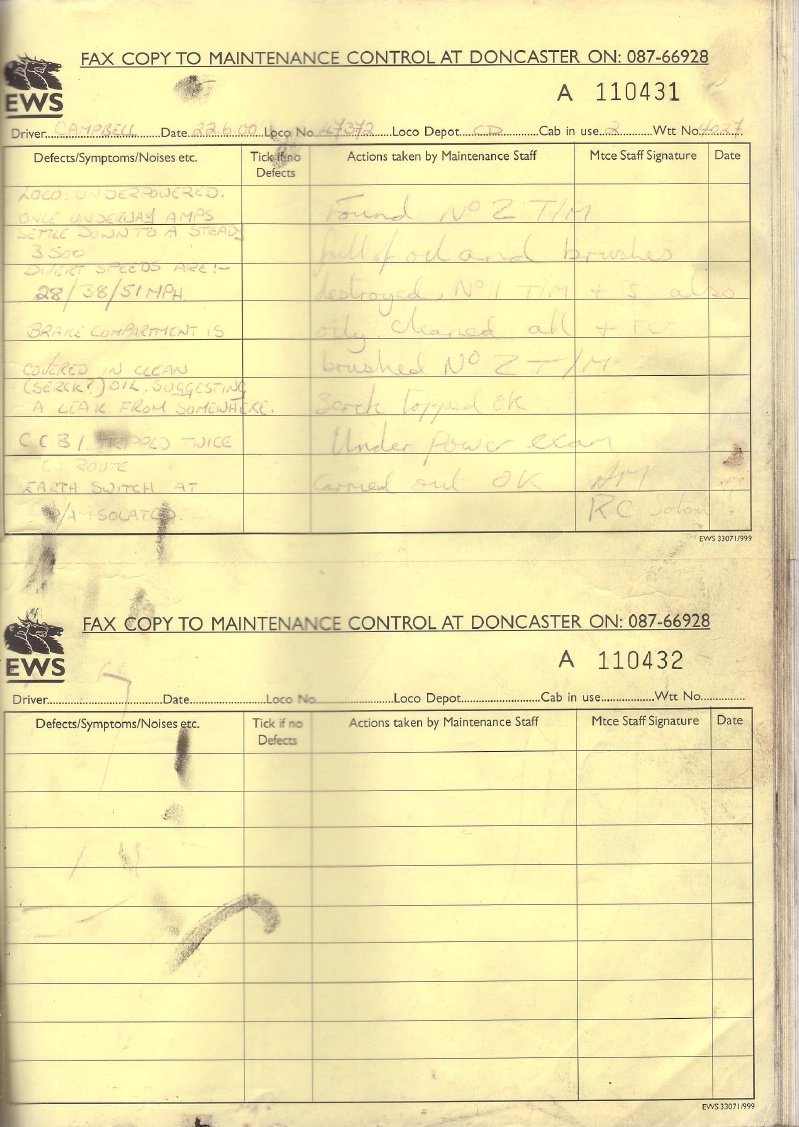 FAX COPY TO MAINTENANCE CONTROL AT DONCASTER ON: 087-66928
EWS
A 110431
Driver CAMPBELL Date 22.6.00 Loco No. 47372 Loco Depot CD Cab in use 2 Wtt No. 4027
Defects/Symptoms/Noises etc. Tick if no Defects Actions taken by Maintenance Staff Mtce Staff Signature Date
LOCO. UNDERPOWERED.
ONCE UNDERWAY AMPS Found No 2 T/M
SETTLE DOWN TO A STEADY
3500 full of oil and brushes
DIVERT SPEEDS ARE:-
28/38/51 MPH destroyed, No 1 T/M + 3 also
BRAKE COMPARTMENT IS oily, cleaned all +
COVERED IN CLEAN brushed No 2 T/M
(SERCK?) OIL. SUGGESTING
A LEAK FROM SOMEWHERE. Serck topped ok
CCB1 TRIPPED TWICE Under Power exam
EN ROUTE
EARTH SWITCH AT carried out OK
P/A ISOLATED. RC
EWS 33071/999
FAX COPY TO MAINTENANCE CONTROL AT DONCASTER ON: 087-66928
EWS
A 110432
Driver Date Loco No Loco Depot Cab in use Wtt No.
Defects/Symptoms/Noises etc. Tick if no Defects Actions taken by Maintenance Staff Mtce Staff Signature Date
EWS 33071/999